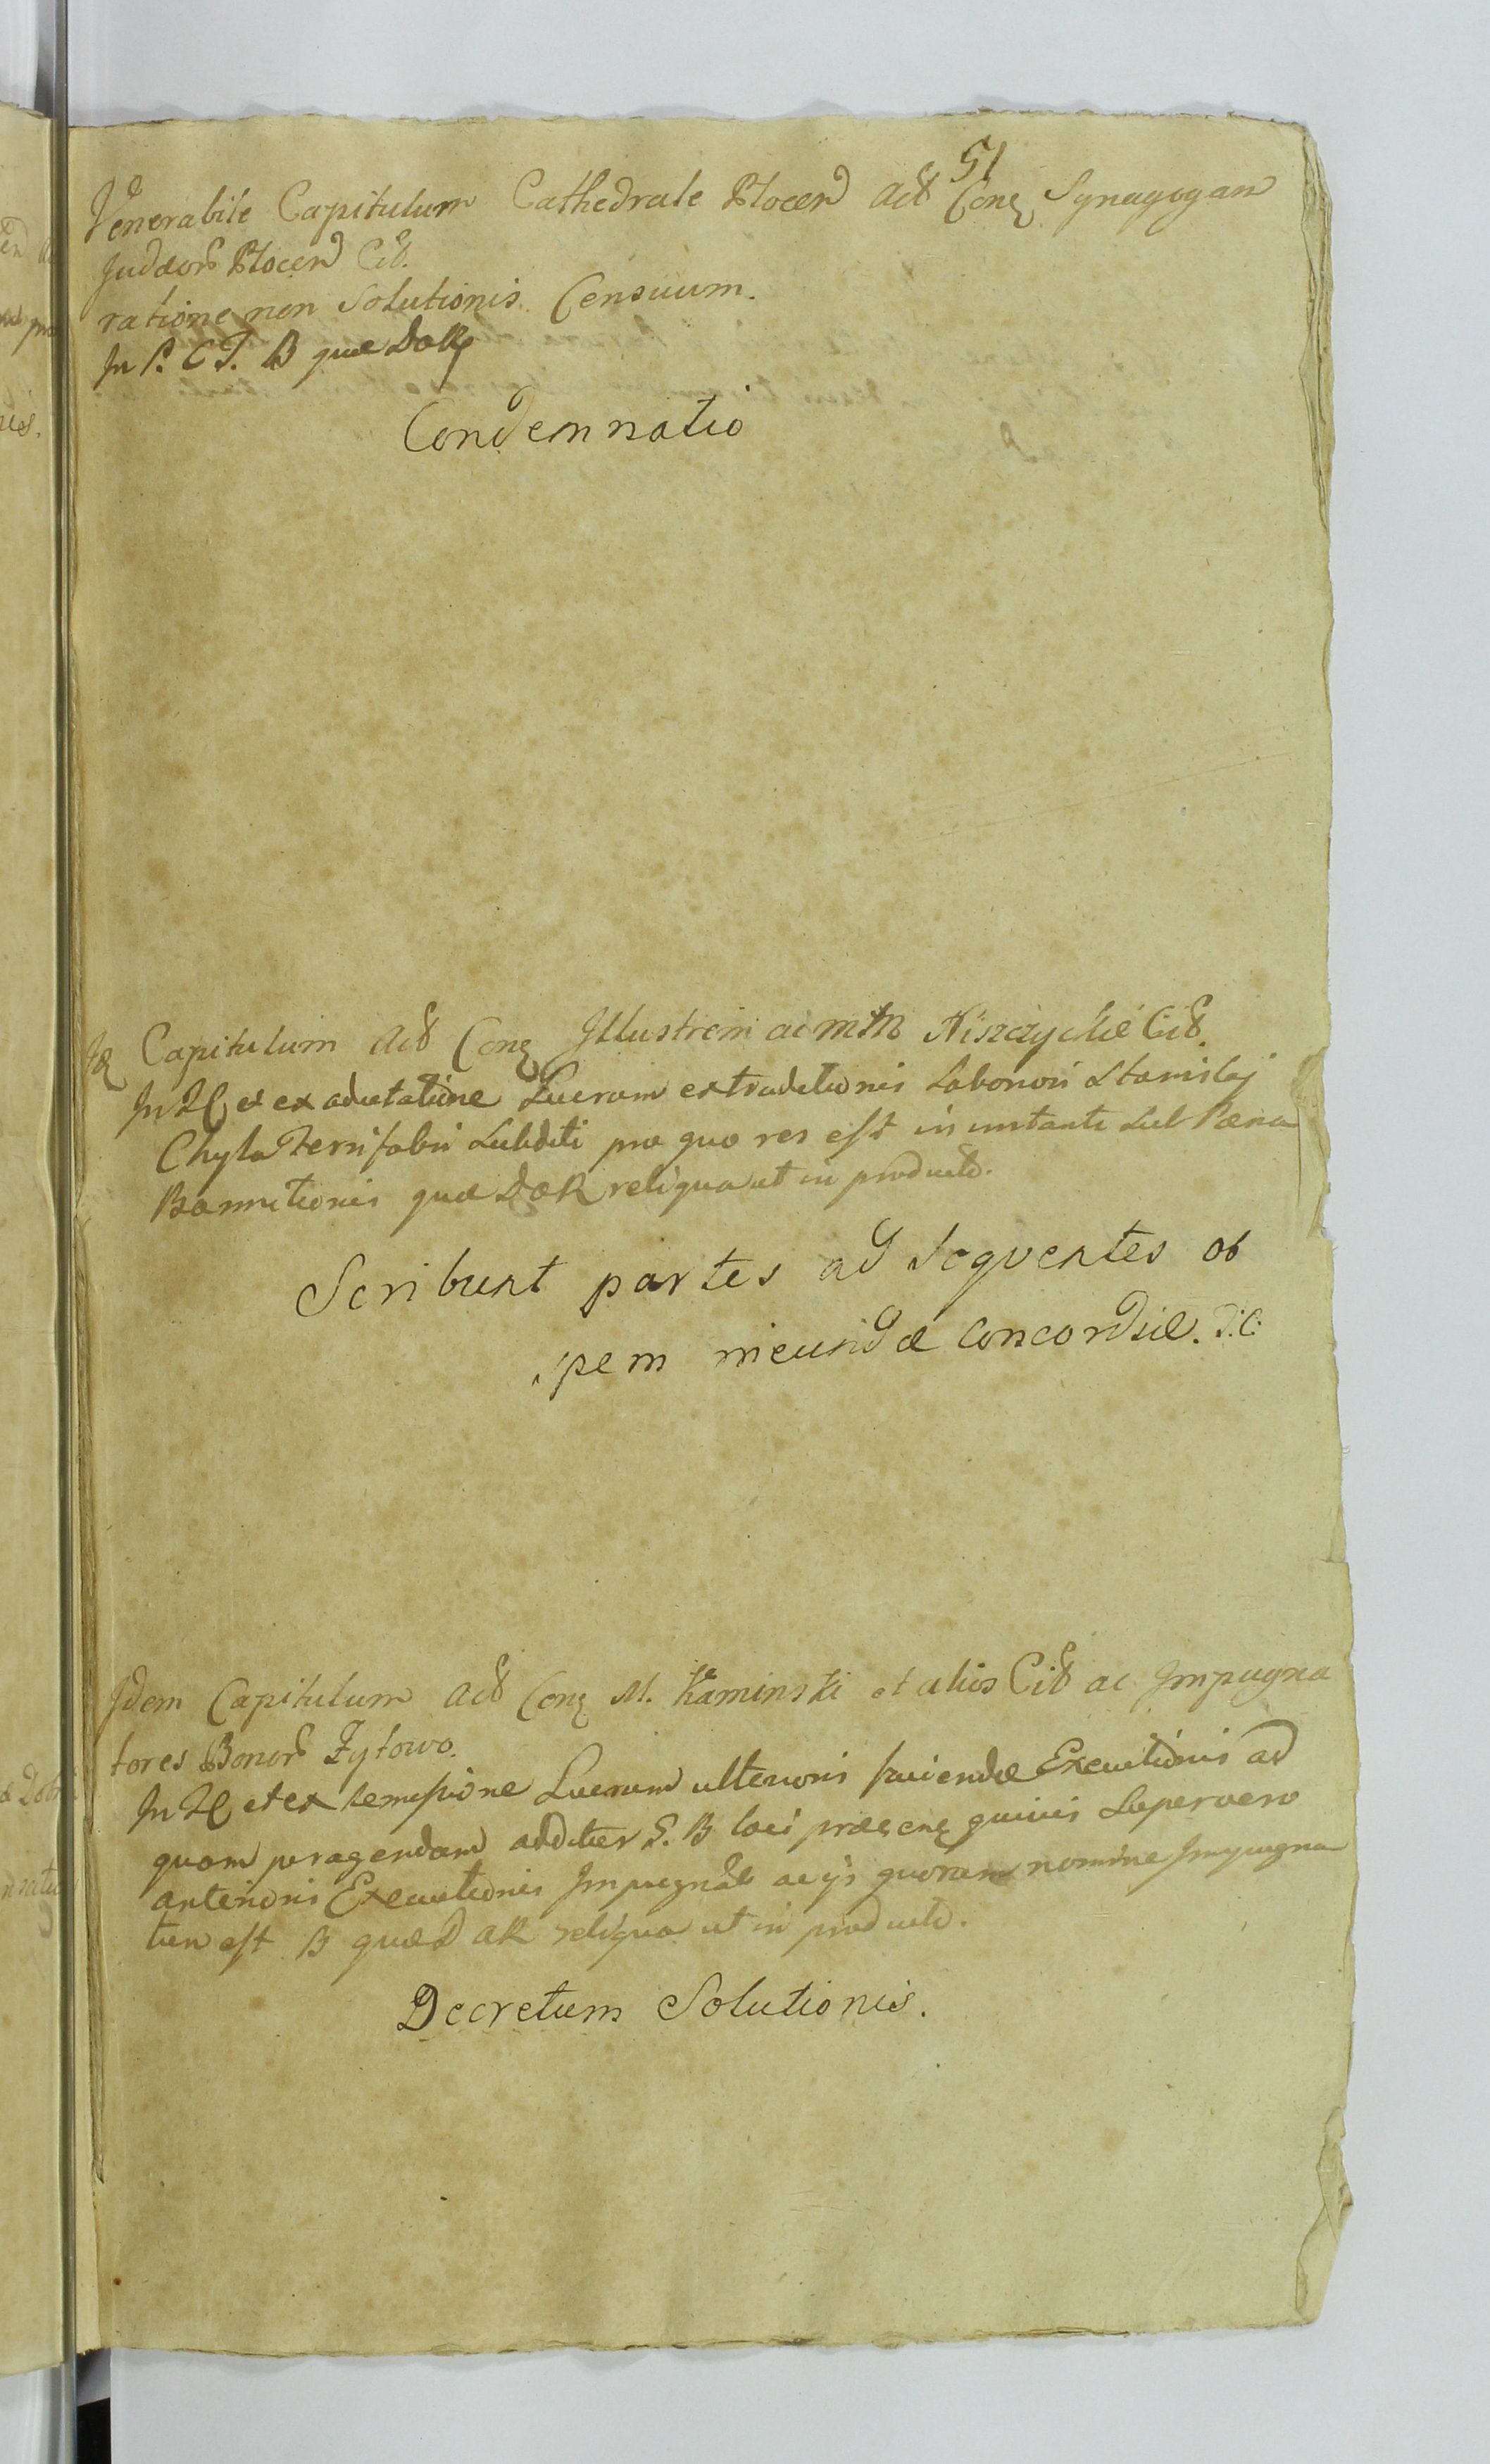 51
Venerabile Capitulum Cathedrale Plocen Act Con Synagogam
Judæor Plocen Cit.
ratione non Solutionis Censuum.
In P. C T. B quæ D a R
Condemnatio
Capitulum Act Con Illustrem ac M Niszczyckie Cit.
In et ex adcitatione Lucrum extraditionis Laboriosi Stanislaj
Chyla Ferrifabri Subditi pro quo res est in instanti sub Pæna
Bannitionis quæ D a R reliqua ut in producto.
Scribunt partes ad Sequentes ob
spem ineundæ Concordiæ. D: C:
Idem Capitulum Act Con M. Kaminski et alios Cit ac Impugna
tores Bonor Zytowo.
In et ex remissione Lucrum ulterioris faciendæ Executionis ad
quam peragendam additur S. B loci præsens quivis Super vero
anterioris Executionis Impugnat ac ijs quorum nomine Impugna
tum est B quæ D a R reliqua ut in producto.
Decretum Solutionis.